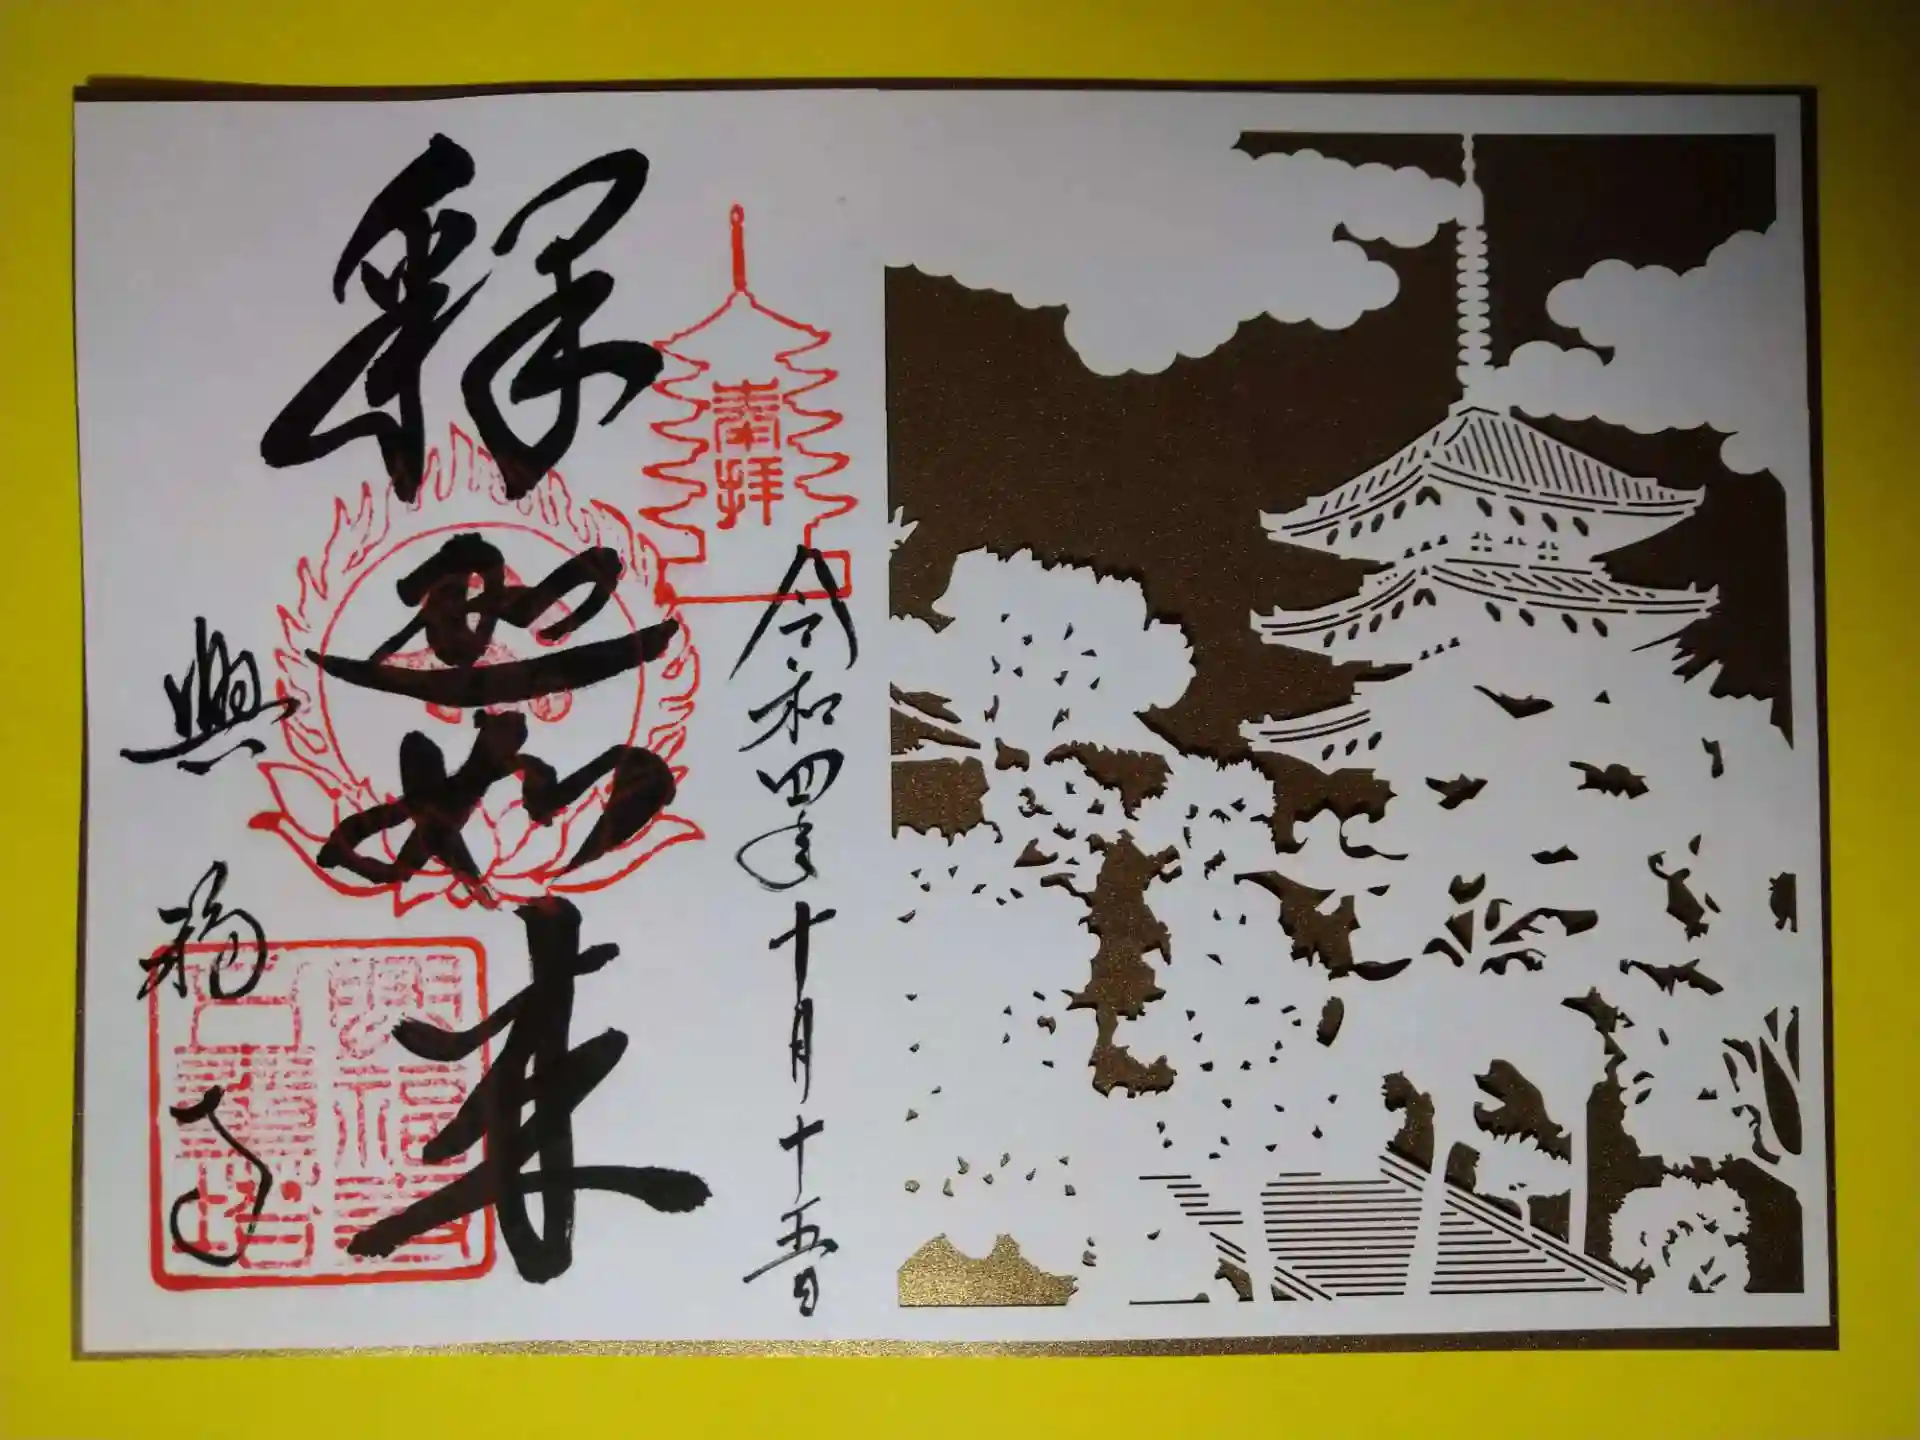 奉拝
令和四年十月十五日
釋迦如来
興福寺
興福寺